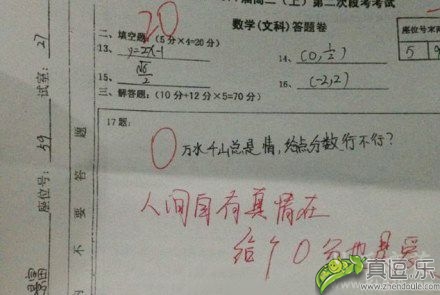 20
二（上）第二次段考考试
数学(文科)答题卷
座位号末两
二、填空题:(5分×4=20分)
5
13、y=2x-1
14、(0, 1/2)
15、√6/2
16、(-2,2)
三、解答题:(10分+12分×5=70分)
17题:
0
万水千山总是情,给点分数行不行?
人间自有真情在
给个0分也是爱
试室: 27
座位号: 59
不要答题
真逗乐
www.zhendoule.com